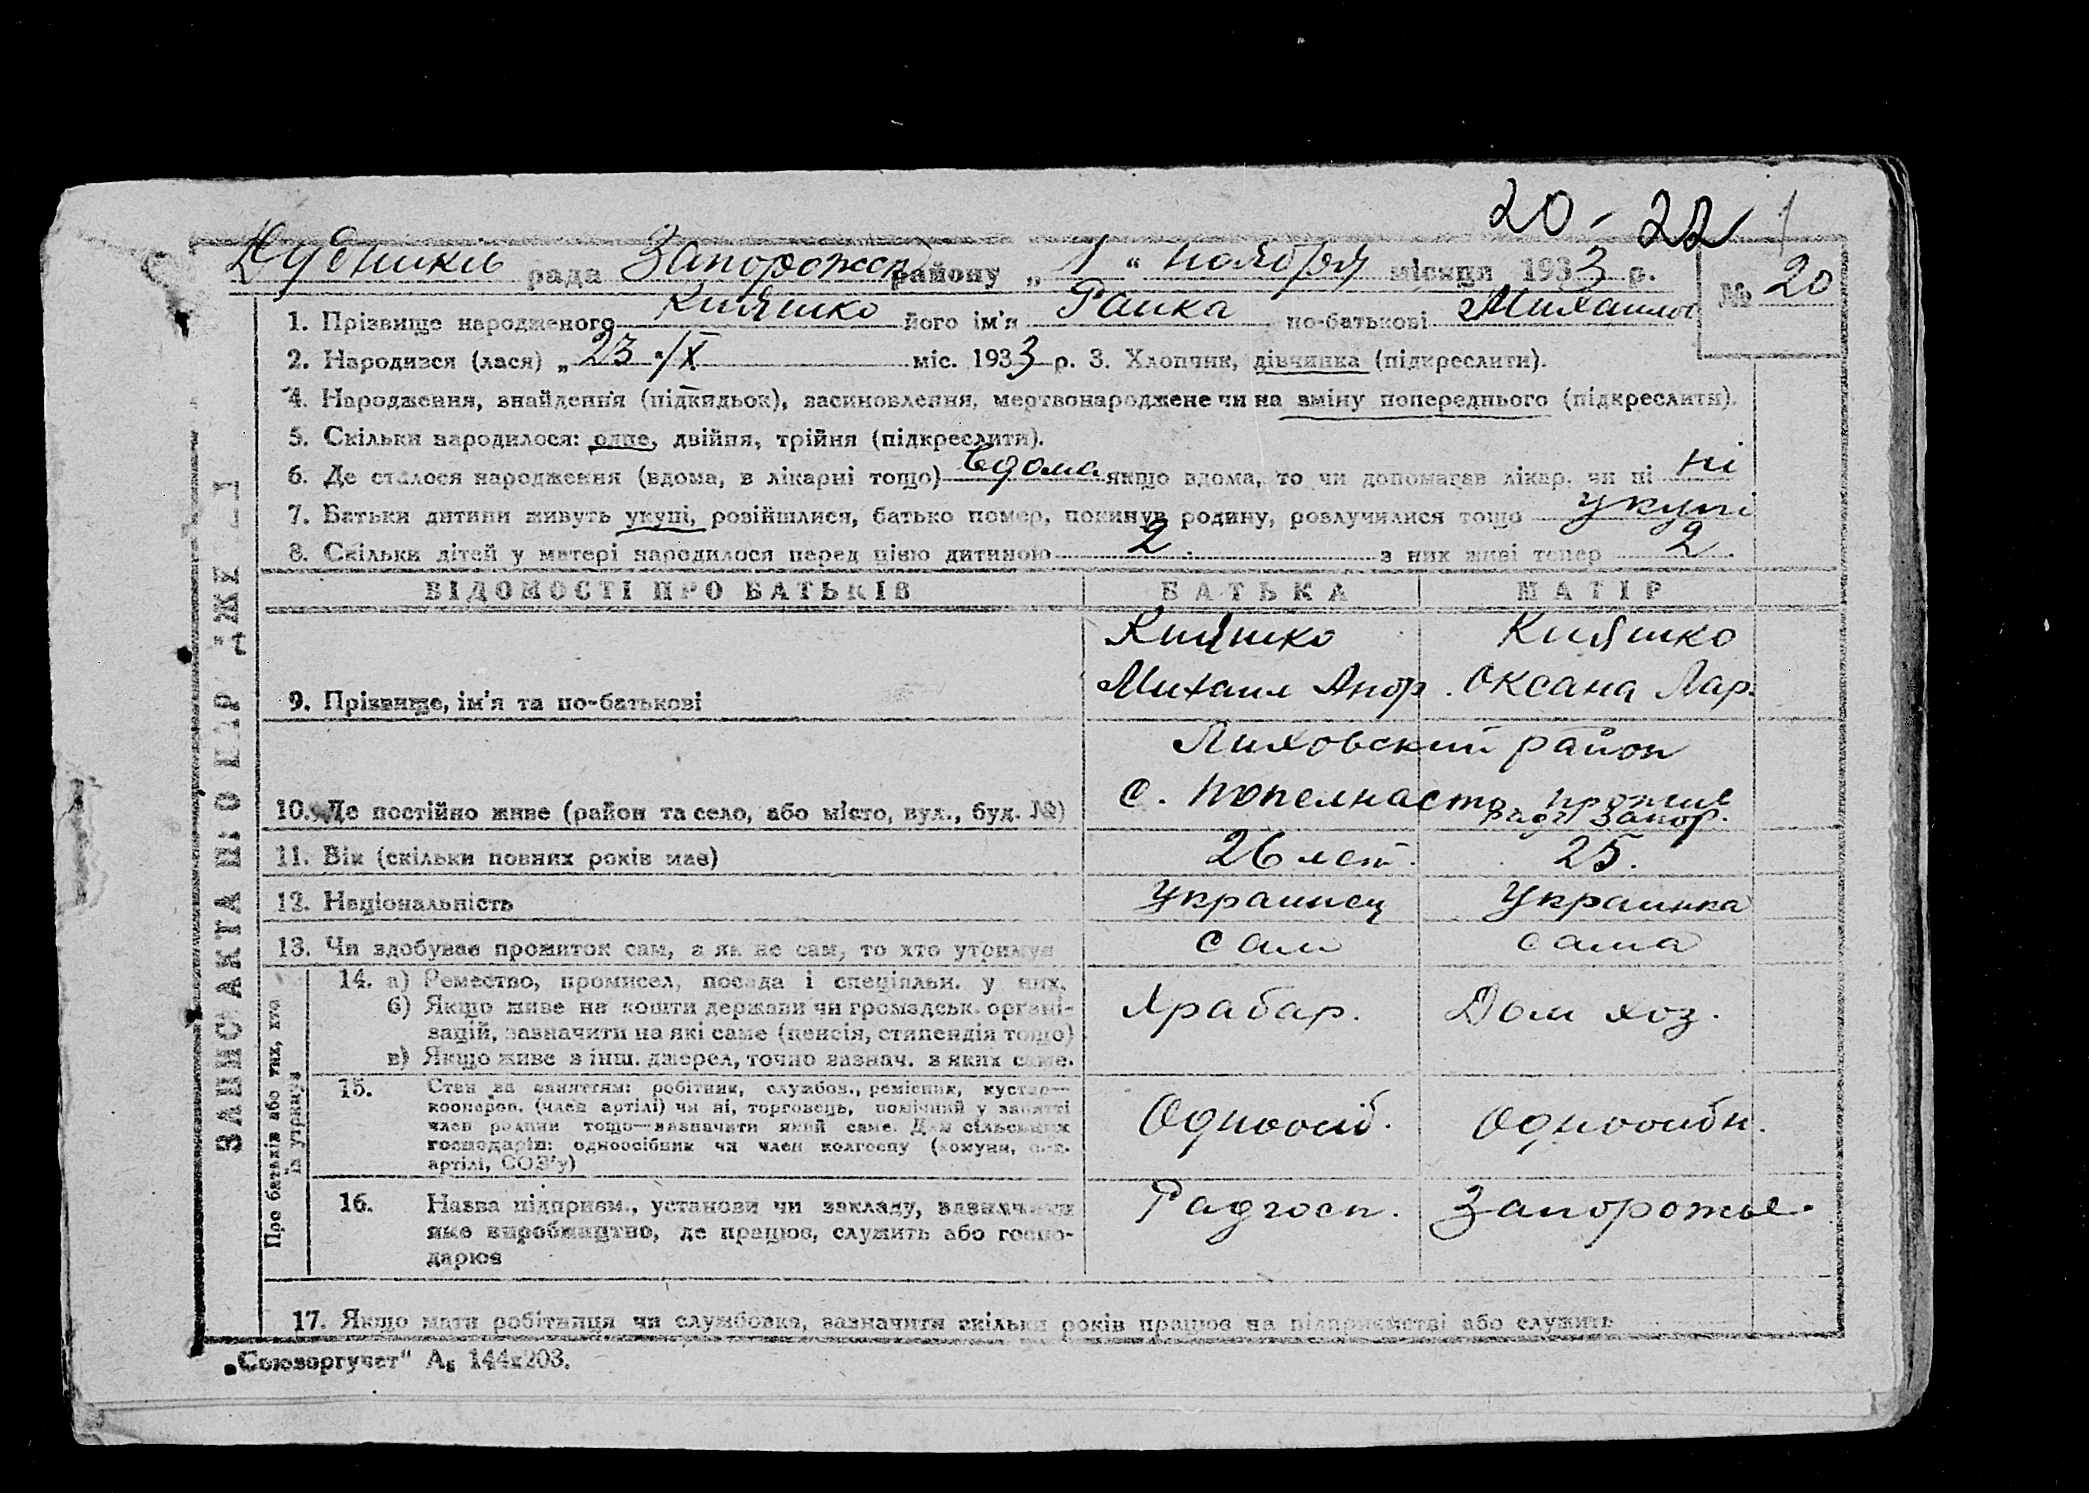 20 - 22
Дубників рада Запорожск району „1“ ноября місяця 1933 р.
№ 20
1. Прізвище народженого Кияшко його ім'я Раика по-батькові Михаилов
2. Народився (лася) „23“/X міс. 1933 р. 3. Хлопчик, дівчинка (підкреслити).
4. Народження, знайдення (підкидьок), всиновлення, мертвонароджене чи на зміну попереднього (підкреслити).
5. Скільки народилося: одне, двійня, трійня (підкреслити).
6. Де сталося народження (вдома, в лікарні тощо) вдома якщо вдома, то чи допомагав лікар, чи ні ні
7. Батьки дитини живуть укупі, розійшлися, батько помер, покинув родину, розлучилися тощо укупі
8. Скільки дітей у матері народилося перед цією дитиною 2 з них живі тепер 2
ВІДОМОСТІ ПРО БАТЬКІВ БАТЬКА МАТІР
Кияшко Кияшко
9. Прізвище, ім'я та по-батькові Михаил Андр. Оксана Лар.
Лиховский район
10. Де постійно живе (район та село, або місто, вул., буд. №) с. Попелнасто,
11. Вік (скільки повних років має) 26 лет. 25.
12. Національність Украинец Украинка
13. Чи здобуває прожиток сам, а як не сам, то хто утримує сам сама
Про батьків або тих, хто їх утримує
14. а) Ремество, промисел, посада і спеціяльн. у них.
б) Якщо живе на кошти держави чи громадськ. організацій, зазначити на які саме (пенсія, стипендія тощо)
в) Якщо живе з інш. джерел, точно зазнач. з яких саме.
Грабар. Дом хоз.
15. Стан за заняттям: робітник, службов., ремісник, кустар—
кооперов. (член артілі) чи ні, торговець, помічний у занятті
член родини тощо—зазначити який саме. Для сільських
господарів: одноосібник чи член колгоспу (комуни, с.-г.
артілі, СОЗ'у)
Одноосіб. Одноосібн.
16. Назва підприєм., установи чи закладу, зазначити
яке виробництво, де працює, служить або господарює
Радгосп. Запорожье.
17. Якщо мати робітниця чи службовка, зазначити скільки років працює на підприємстві або служить
„Союзоргучет“ А₅ 144х203.